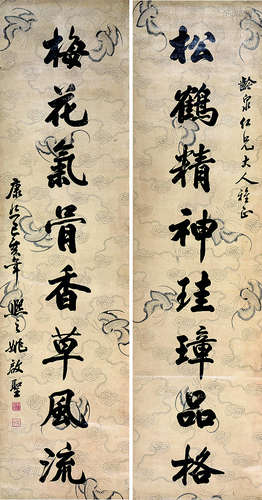 松鶴精神珪璋品格
齡泉仁兄大人雅正
梅花氣骨香草風流
康熙己亥年 熙之姚啟聖